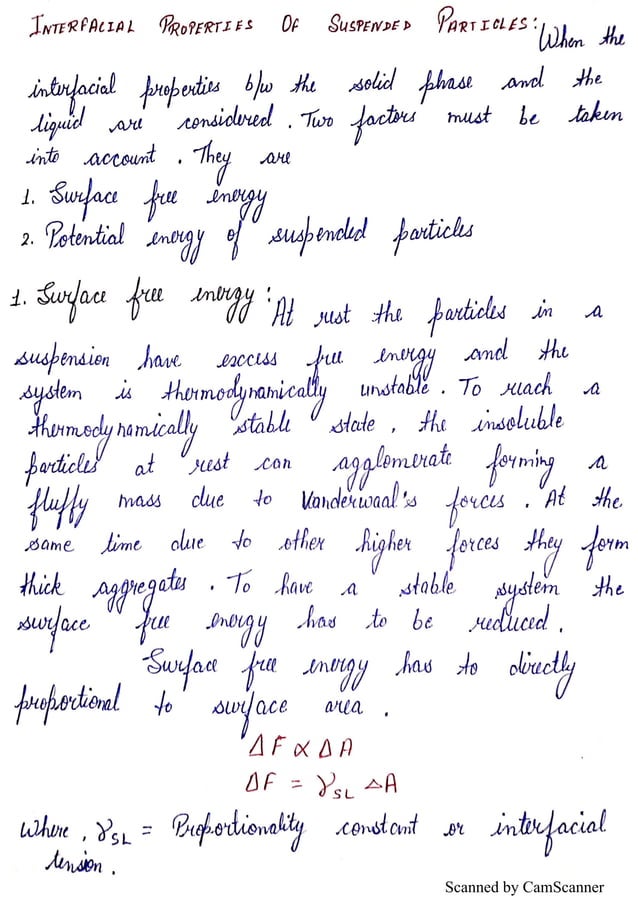 INTERFACIAL PROPERTIES OF SUSPENDED PARTICLES: When the
interfacial properties b/w the solid phase and the
liquid are considered. Two factors must be taken
into account. They are
1. Surface free energy
2. Potential energy of suspended particles
1. Surface free energy: At rest the particles in a
suspension have exccess free energy and the
system is thermodynamically unstable. To reach a
thermodynamically stable state, the insoluble
particles at rest can agglomerate forming a
fluffy mass due to Vanderwaal's forces. At the
same time due to other higher forces they form
thick aggregates. To have a stable system the
surface free energy has to be reduced.
Surface free energy has to directly
proportional to surface area.
ΔF ∝ ΔA
ΔF = γSL ΔA
Where, γSL = Proportionality constant or interfacial
tension.
Scanned by CamScanner